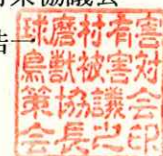 策協議会
浩一
球磨村有害
鳥獣被害対
策協議会
会長之印